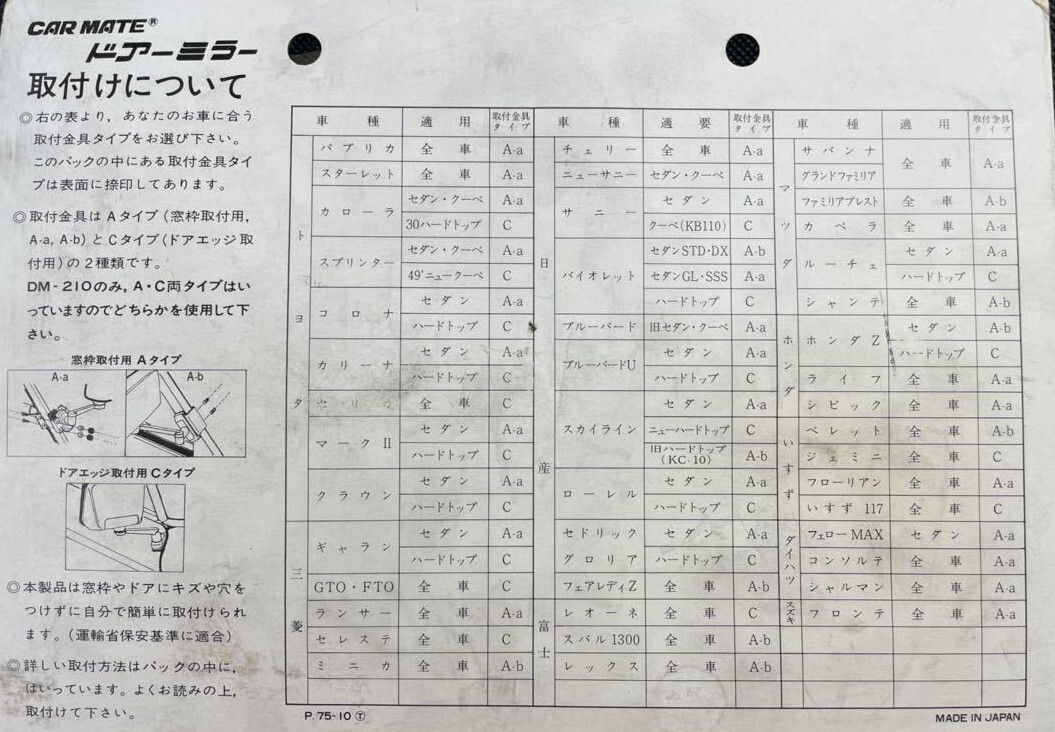 CAR MATE®
ドアーミラー
取付けについて
◎右の表より，あなたのお車に合う
取付金具タイプをお選び下さい。
このパックの中にある取付金具タイ
プは表面に捺印してあります。
◎取付金具はAタイプ(窓枠取付用，
A-a, A-b)とCタイプ(ドアエッジ取
付用)の2種類です。
DM-210のみ，A・C両タイプはい
っていますのでどちらかを使用して下
さい。
窓枠取付用 Aタイプ
A-a A-b
ドアエッジ取付用 Cタイプ
◎本製品は窓枠やドアにキズや穴を
つけずに自分で簡単に取付けられ
ます。(運輸省保安基準に適合)
◎詳しい取付方法はパックの中に，
はいっています。よくお読みの上，
取付けて下さい。
車種 適用 取付金具タイプ
トヨタ
パブリカ 全車 A-a
スターレット 全車 A-a
カローラ セダン・クーペ A-a
30ハードトップ C
スプリンター セダン・クーペ A-a
49'ニュークーペ C
コロナ セダン A-a
ハードトップ C
カリーナ セダン A-a
ハードトップ C
セリカ 全車 C
マークII セダン A-a
ハードトップ C
クラウン セダン A-a
ハードトップ C
三菱
ギャラン セダン A-a
ハードトップ C
GTO・FTO 全車 C
ランサー 全車 A-a
セレステ 全車 C
ミニカ 全車 A-b
車種 適要 取付金具タイプ
日産
チェリー 全車 A-a
ニューサニー セダン・クーペ A-a
サニー セダン A-a
クーペ(KB110) C
バイオレット セダンSTD・DX A-b
セダンGL・SSS A-a
ハードトップ C
ブルーバード 旧セダン・クーペ A-a
ブルーバードU セダン A-a
ハードトップ C
スカイライン セダン A-a
ニューハードトップ C
旧ハードトップ(KC-10) A-b
ローレル セダン A-a
ハードトップ C
セドリック セダン A-a
グロリア ハードトップ C
フェアレディZ 全車 A-b
富士
レオーネ 全車 C
スバル1300 全車 A-b
レックス 全車 A-b
車種 適用 取付金具タイプ
マツダ
サバンナ 全車 A-a
グランドファミリア
ファミリアプレスト 全車 A-b
カペラ 全車 A-a
ルーチェ セダン A-a
ハードトップ C
シャンテ 全車 A-b
ホンダ
ホンダZ セダン A-b
ハードトップ C
ライフ 全車 A-a
シビック 全車 A-a
いすず
ベレット 全車 A-b
ジェミニ 全車 C
フローリアン 全車 A-a
いすず117 全車 C
ダイハツ
フェローMAX セダン A-a
コンソルテ 全車 A-a
シャルマン 全車 A-a
スズキ
フロンテ 全車 A-a
P.75-10Ⓣ
MADE IN JAPAN